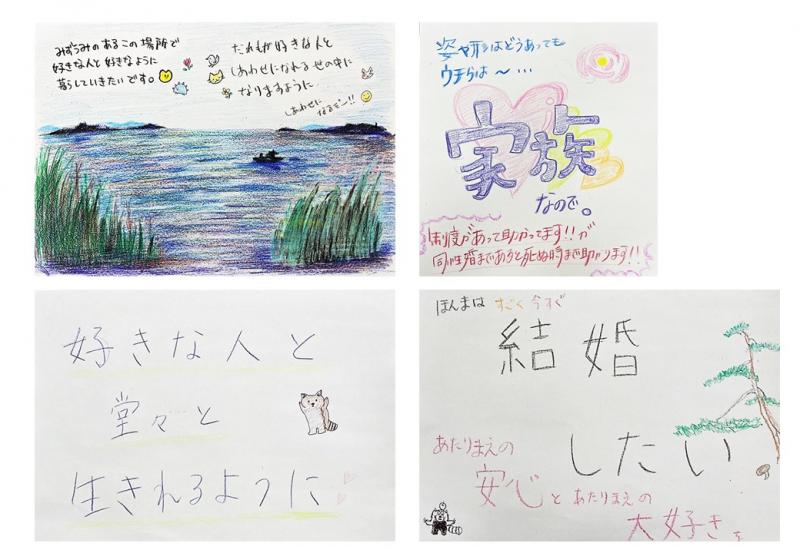 みずうみのあるこの場所で
好きな人と好きなように
暮らしていきたいです。
だれもが好きな人と
しあわせになれる世の中に
なりますように
しあわせに
なるぞー!!
姿や形はどうあっても
ウチらは〜…
家族
なので。
制度があって助かってます!!が
同性婚まであると死ぬ時まで助かります!!
好きな人と
堂々と
生きれるように
ほんまは すごく 今すぐ
結婚
したい
あたりまえの
安心と あたりまえの
大好きを